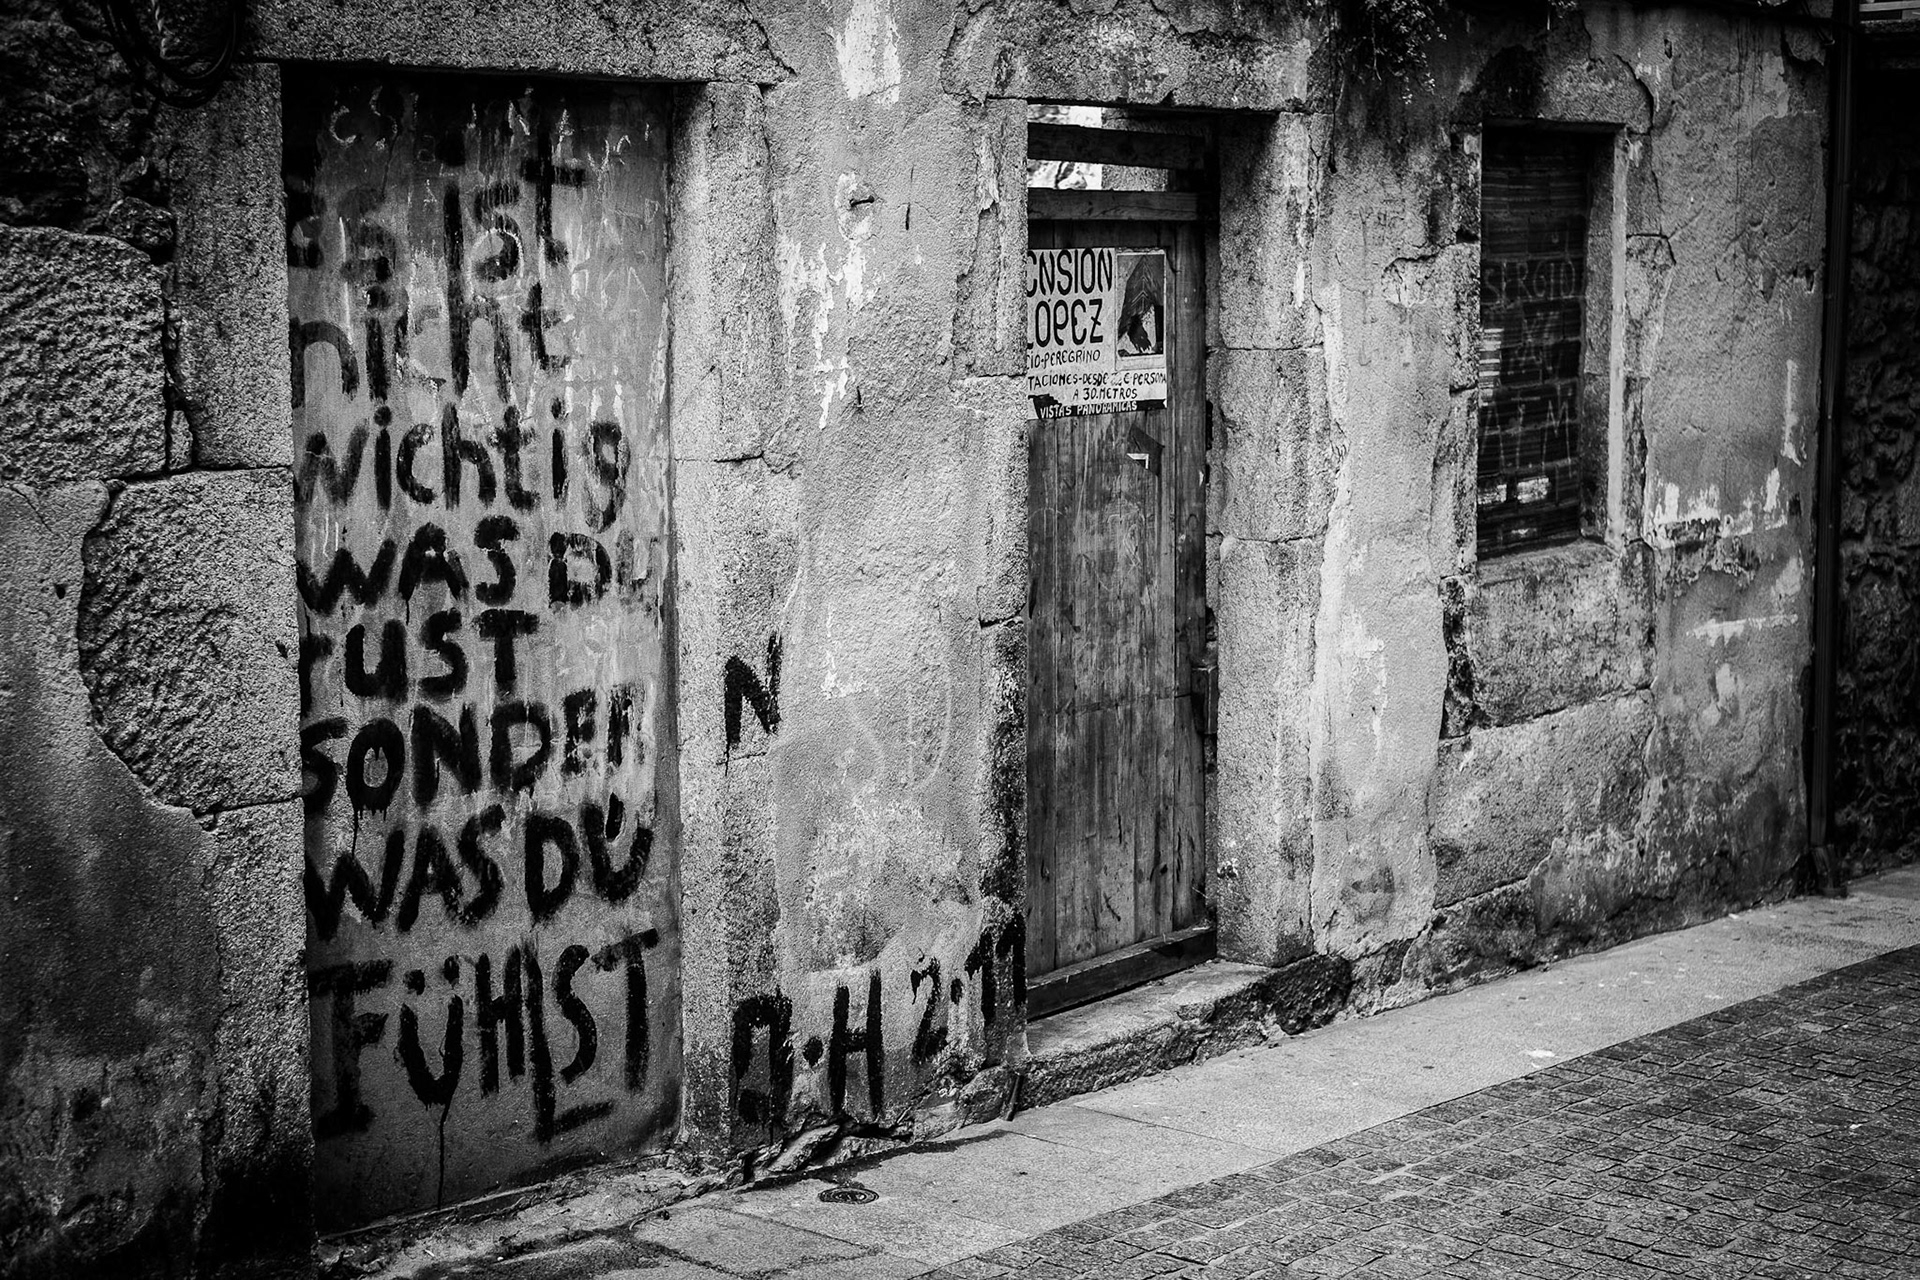 Es ist
nicht
wichtig
WAS DU
TUST
SONDERN
WAS DU
FÜHLST
M.H 2.11
ENSION
LÓPEZ
CIO-PEREGRINO
TACIONES-DESDE € PERSONA
A 30 METROS
VISTAS PANORAMICAS
SERGIO